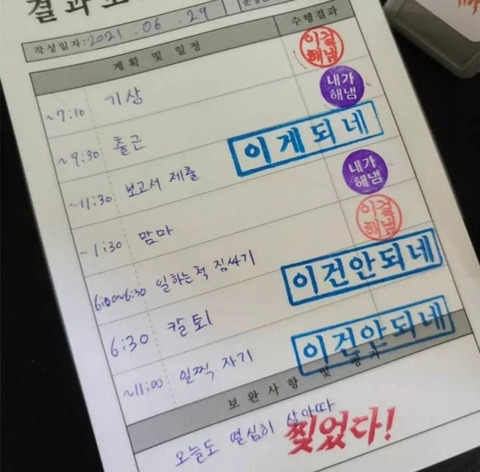 결과보
작성일자: 2021. 06. 29
계획 및 일정 수행결과
~7:10 기상 이걸해냄
~9:30 출근 내가해냄
~11:30 보고서 제출 이게되네
~1:30 맘마 내가해냄
6:00~6:30 일하는척 짐싸기 이걸해냄
6:30 칼퇴 이건안되네
~11:00 일찍 자기 이건안되네
보완사항 및 평가
오늘도 열심히 살아따
찢었다!